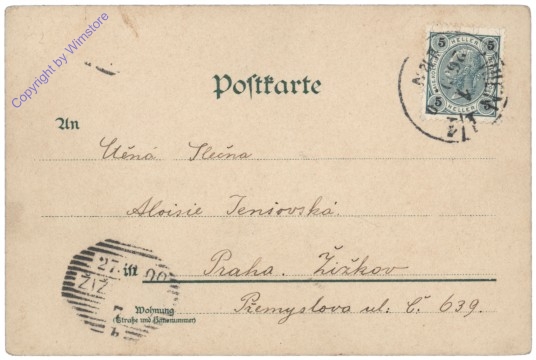 Copyright by Wimstore
5 HELLER 5
5 HELLER 5
Postkarte
An
Ctěná Slečna
Aloisie Jenšovská.
27.
ŽIŽ
in Praha. Žižkov
Wohnung
(Straße und Hausnummer)
Přemyslova ul: Č. 639.